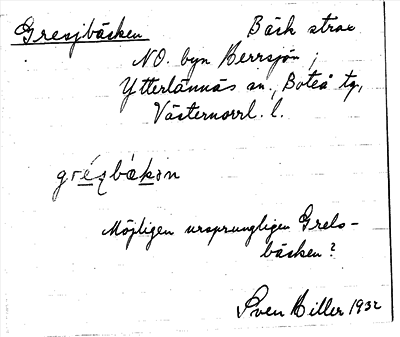 Gresjbäcken Bäck strax
NO. byn Herrsjön,
Ytterlännäs sn., Boteå tg,
Västernorrl. l.
Möjligen ursprungligen Grels-
bäcken?
Sven Hiller 1932